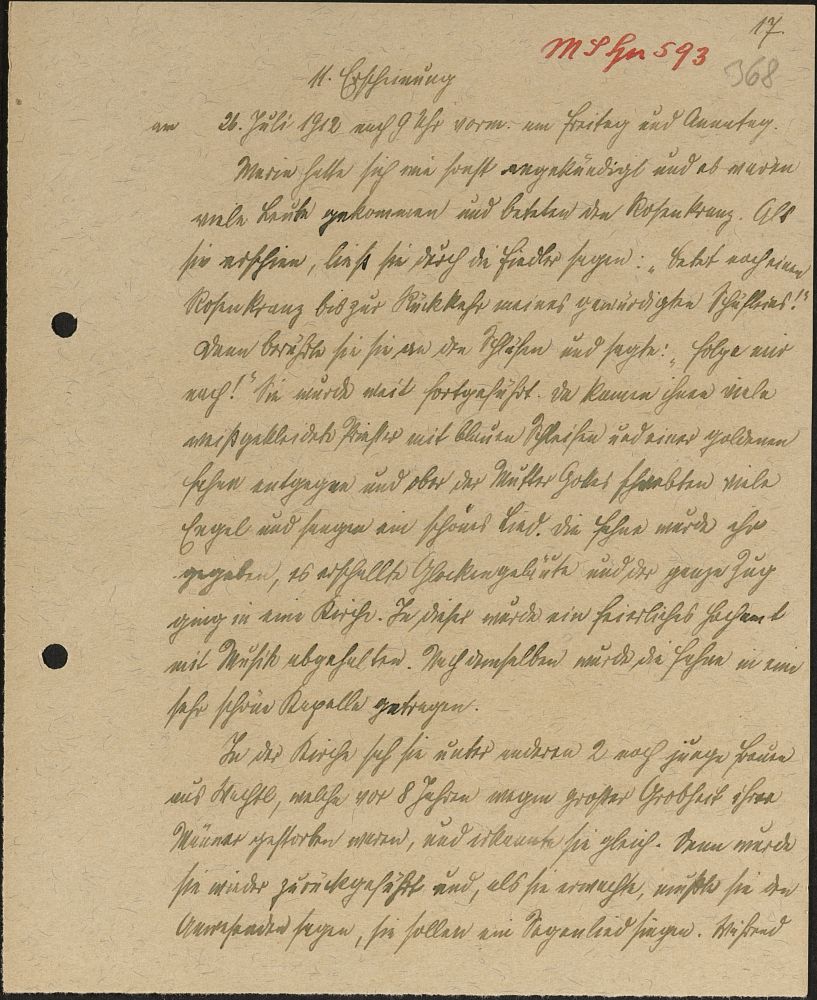 17.
MS Hn 593
368
11. Erscheinung
am 26. Juli 1912 nach 9 Uhr vorm. am Freitag und Annatag.
Maria hatte sich wie sonst angekündigt und es waren
viele Leute gekommen und beteten den Rosenkranz. Als
sie erschien, ließ sie durch die Fiedler sagen: „Betet noch einen
Rosenkranz bis zur Rückkehr meines gewürdigten Schäfleins!"
Dann berührte sie sie an den Schläfen und sagte: „Folge mir
nach!" Sie wurde weit fortgeführt. Da kamen ihnen viele
weißgekleidete Priester mit blauen Schleifen und einer goldenen
Fahne entgegen und ober der Mutter Gottes schwebten viele
Engel und sangen ein schönes Lied. Die Fahne wurde ihr
gegeben, es erschallte Glockengeläute und der ganze Zug
ging in eine Kirche. In dieser wurde ein feierliches Hochamt
mit Musik abgehalten. Nach demselben wurde die Fahne in eine
sehr schöne Kapelle getragen.
In der Kirche sah sie unter anderen 2 noch junge Frauen
aus, welche vor 8 Jahren wegen großer Grobheit ihrer
Männer gestorben waren, und erkannte sie gleich. Dann wurde
sie wieder zurückgeführt und, als sie erwachte, mußte sie den
Anwesenden sagen, sie sollen ein Segenlied singen. Während